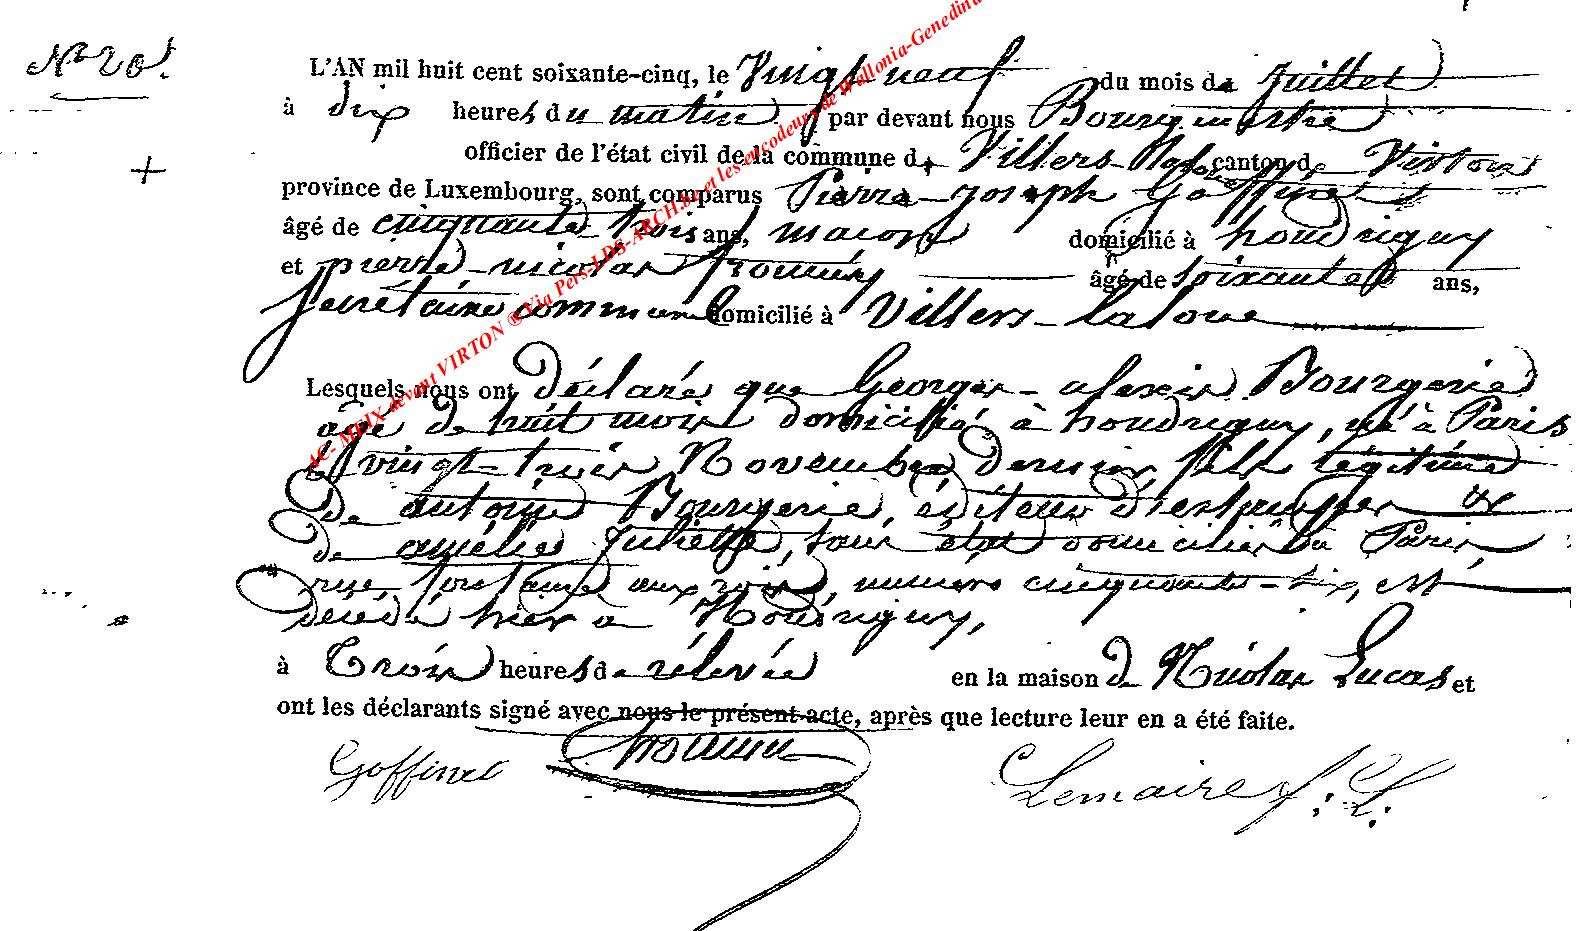 N° 20.
L'AN mil huit cent soixante-cinq, le Vingt neuf du mois de Juillet
à dix heures du matin par devant nous Bourgmestre
officier de l'état civil de la commune de Villers-Laloue canton de Virton
province de Luxembourg, sont comparus Pierre-Joseph Goffinet
âgé de cinquante trois ans, maçon domicilié à houdrigny
et pierre-nicolas âgé de soixante ans,
Secrétaire communal domicilié à Villers-laloue
Lesquels nous ont déclaré que Georges-alexis Bourgerie
agé de huit mois domicilié à houdrigny, né à Paris
le vingt-trois Novembre dernier, fils légitime
de antoine Bourgerie, éditeur d'estampes &
de amélie Juliette, sans état domiciliés à Paris
rue fontaine aux rois, numero cinquante-six, est
décédé hier a Houdrigny,
à Trois heures de rélevée en la maison de Nicolas Lucas et
ont les déclarants signé avec nous le présent acte, après que lecture leur en a été faite.
Goffinet Lemaire f. L.
AC- MEIX devant VIRTON ® Via Pers-LDS-ARCH.be et les encodeurs de Wallonia-Genedina